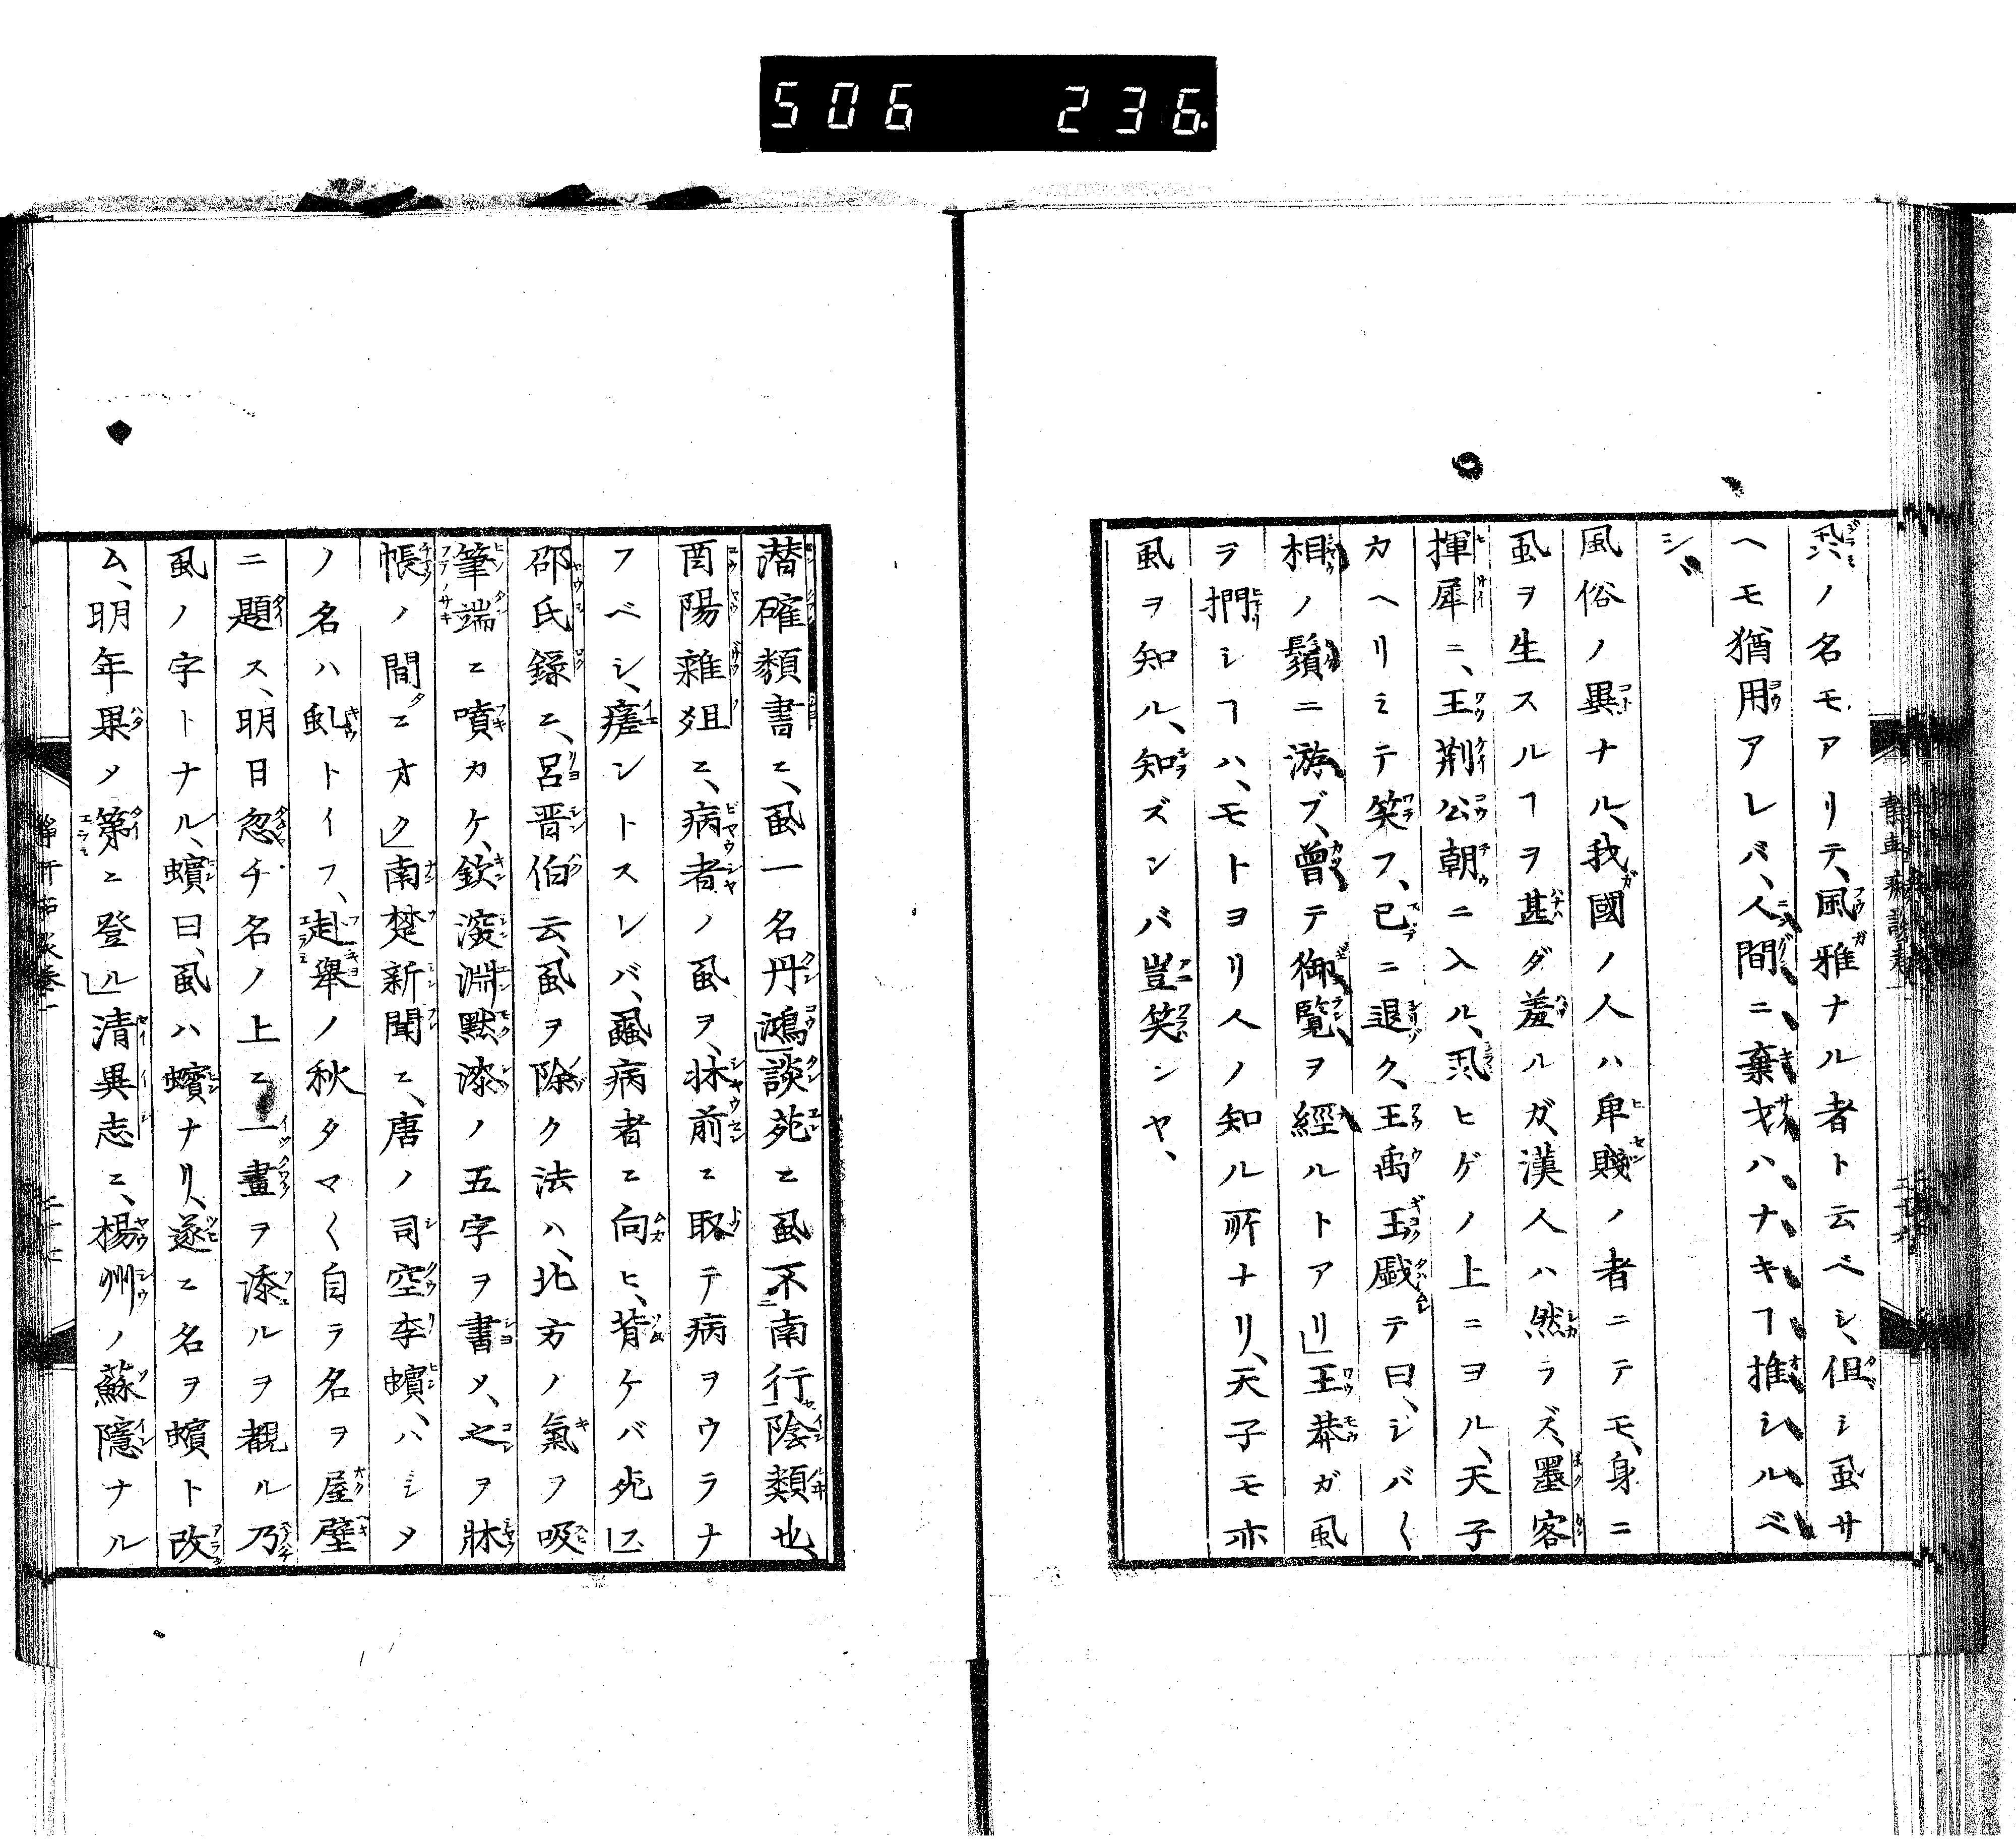 506 236
虱ノ名モアリテ、風雅ナル者ト云ベシ、但シ虱サ
ヘモ猶用アレバ、人間ニ、棄才ハ、ナキヿ推シルベ
シ
風俗ノ異ナル、我國ノ人ハ卑賤ノ者ニテモ、身ニ
虱ヲ生スルヿヲ甚ダ羞ルガ、漢人ハ然ラズ、墨客
揮犀ニ、王荆公朝ニ入ル、虱ヒゲノ上ニヨル、天子
カヘリミテ笑フ、已ニ退ク、王禹玉戯テ曰、シバ〱
相ノ鬚ニ游ブ、曾テ御覽ヲ經ルトアリ」王莽ガ虱
ヲ捫シヿハ、モトヨリ人ノ知ル所ナリ、天子モ亦
虱ヲ知ル、知ズンバ豈笑ンヤ、
潜確類書ニ、虱一名丹鴻」談苑ニ虱不南行陰類也、
酉陽雜俎ニ、病者ノ虱ヲ、牀前ニ取テ病ヲウラナ
フベシ、瘥ントスレバ、虱病者ニ向ヒ、背ケバ死ス
邵氏録ニ、呂晋伯云、虱ヲ除ク法ハ、北方ノ氣ヲ吸
筆端ニ噴カケ、欽深淵默漆ノ五字ヲ書メ、之ヲ牀
帳ノ間ニオク」南楚新聞ニ、唐ノ司空李蠙、ハシメ
ノ名ハ虬トイフ、赴舉ノ秋タマ〱自ラ名ヲ屋壁
ニ題ス、明日忽チ名ノ上ニ一畫ヲ添ルヲ覩ル乃
虱ノ字トナル、蠙曰、虱ハ蠙ナリ、遂ニ名ヲ蠙ト改
ム、明年果ノ第ニ登ル」清異志ニ、楊州ノ蘇隱ナル